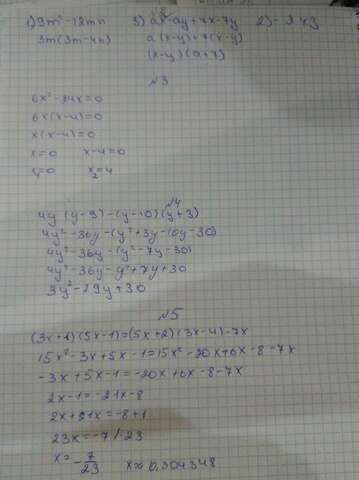 1) 9m²-12mn 3) ax-ay+7x-7y
3m(3m-4n) a(x-y)+7(x-y)
(x-y)(a+7)
№3
6x²-24x=0
6x(x-4)=0
x(x-4)=0
x=0 x-4=0
x₁=0 x₂=4
№4
4y(y-9)-(y-10)(y+3)
4y²-36y-(y²+3y-10y-30)
4y²-36y-(y²-7y-30)
4y²-36y-y²+7y+30
3y²-29y+30
№5
(3x+1)(5x-1)=(5x+2)(3x-4)-7x
15x²-3x+5x-1=15x²-20x+6x-8-7x
-3x+5x-1=-20x+6x-8-7x
2x-1=-21x-8
2x+21x=-8+1
23x=-7/:23
x=-7/23 x≈0,304348